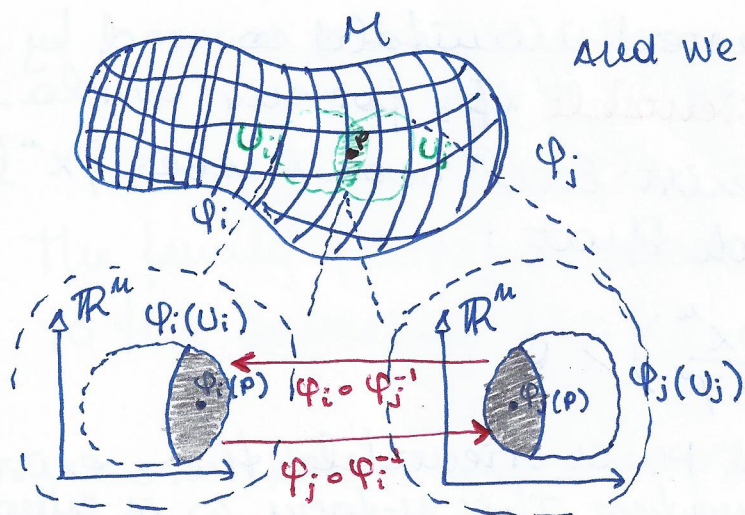 M
and we
U_i
P
U_j
φ_j
φ_i
ℝⁿ
φ_i(U_i)
φ_i(P)
φ_i ∘ φ_j⁻¹
φ_j ∘ φ_i⁻¹
ℝⁿ
φ_j(P)
φ_j(U_j)